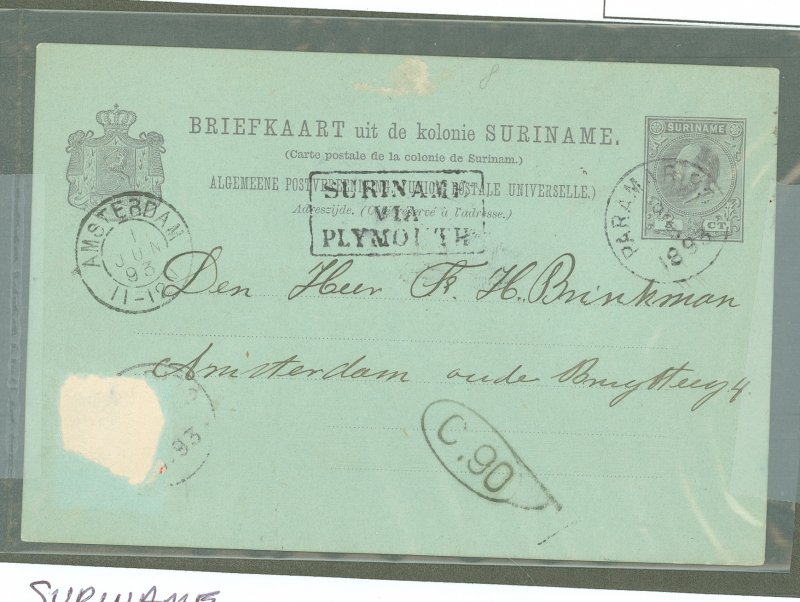 8
BRIEFKAART uit de kolonie SURINAME.
(Carte postale de la colonie de Surinam.)
ALGEMEENE UNION POSTALE UNIVERSELLE.)
Adreszijde. (Côté réservé à l'adresse.)
SURINAME
VIA
PLYMOUTH
SURINAME
CT.
PARAMARIBO
1893
AMSTERDAM
1
JUN
93
11-12
Den Heer H. Brinkman
Amsterdam oude
93
C.90
SURINAME